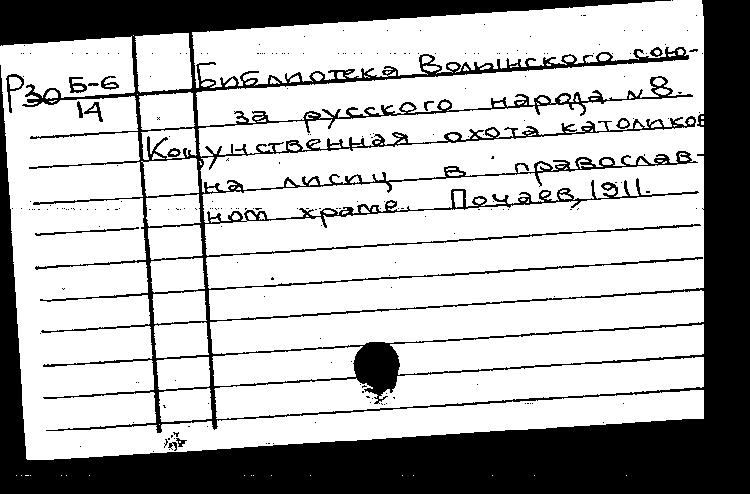 Р30 Б-6 Библиотека Волынского сою-
14 за русского народа. N 8.
Кощунственная охота католиков
на лисиц в православ-
ном храме. Почаев, 1911.